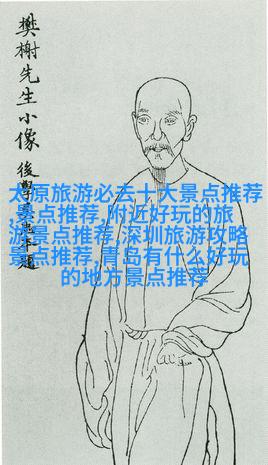 樊榭先生小像
後學
題
太原旅游必去十大景点推荐
,景点推荐,附近好玩的旅
游景点推荐,深圳旅游攻略
景点推荐,青岛有什么好玩
的地方景点推荐